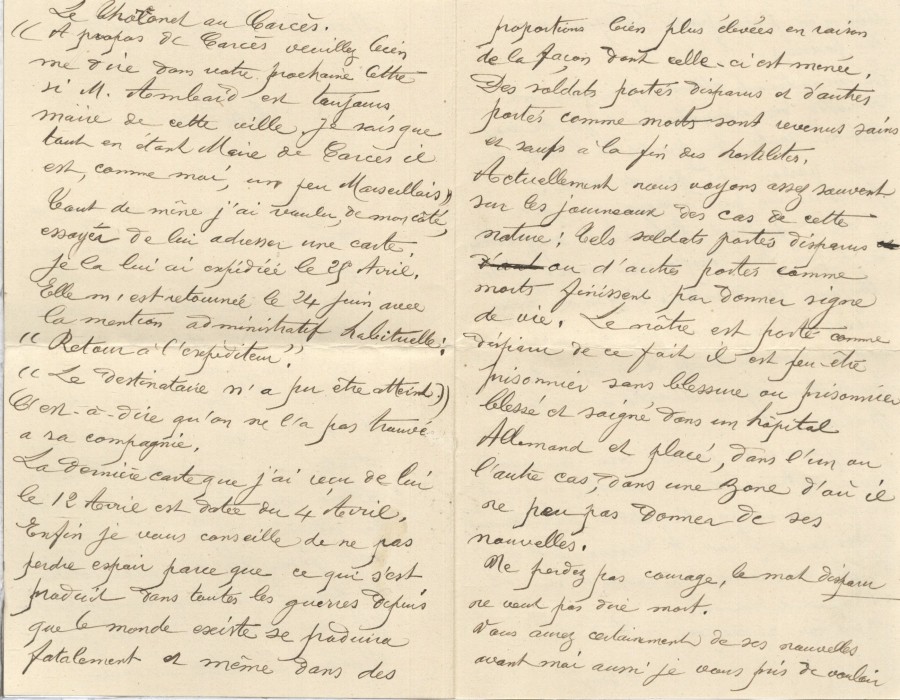 Le Thoronet au Carcès.
(( A propos de Carcès veuillez bien
me dire dans votre prochaine lettre
si M. Aembard est toujours
maire de cette ville. Je sais que
tout en étant Maire de Carcès il
est, comme moi, un peu Marseillais ))
Tout de même j'ai voulu, de mon côté,
essayer de lui adresser une carte
je la lui ai expédiée le 25 Avril.
Elle m'est retournée le 24 juin avec
la mention administratif habituelle:
(( Retour à l'expéditeur".
(( Le Destinataire n'a pu être atteint.))
C'est-à-dire qu'on ne l'a pas trouvé
a sa compagnie.
La dernière carte que j'ai reçu de lui
le 12 Avril est datée du 4 Avril.
Enfin je vous conseille de ne pas
perdre espoir parce que ce qui s'est
produit dans toutes les guerres depuis
que le monde existe se produira
fatalement et même dans des
proportions bien plus élevées en raison
de la façon dont celle-ci est menée.
Des soldats portés disparus et d'autres
portés comme morts sont revenus sains
et saufs à la fin des hostilités.
Actuellement nous voyons assez souvent
sur les journaux des cas de cette
nature; Tels soldats portés disparus
ou d'autres portés comme
morts finissent par donner signe
de vie. Le nôtre est porté comme
disparu de ce fait il est peu-être
prisonnier sans blessure ou prisonnier
blessé et soigné dans un hôpital
Allemand et placé, dans l'un ou
l'autre cas, dans une Zone d'où il
ne peu pas donner de ses
nouvelles.
Ne perdez pas courage, le mot disparu
ne veut pas dire mort.
Vous aurez certainement de ses nouvelles
avant moi aussi je vous pris de vouloir